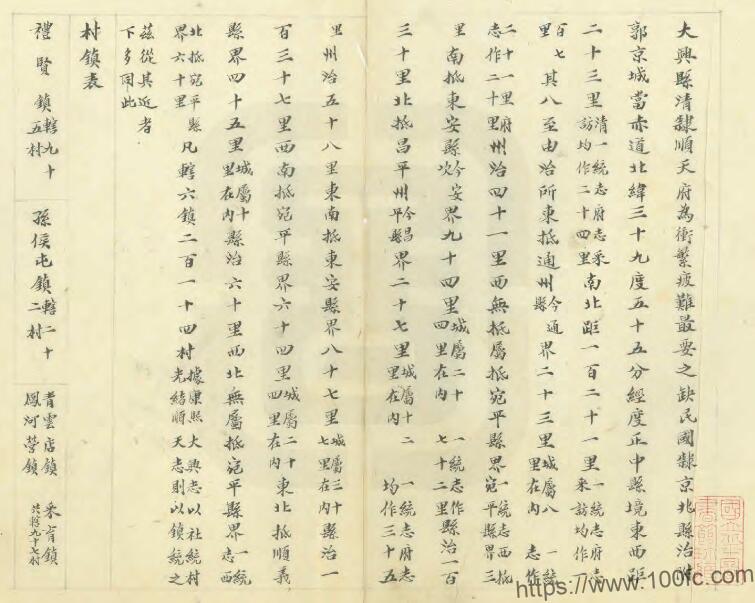 大興縣清隸順天府為衝繁疲難最要之缺民國隸京北縣治附
郭京城當赤道北緯三十九度五十五分經度正中縣境東西距
二十三里清一統志府志采訪均作二十四里南北距一百二十一里一統志府志采訪均作
百七里其八至由治所東抵通州今通縣界二十三里城屬八里在內一統志作
二十一里府志作二十里州治四十一里西無抵屬抵宛平縣界一統志西抵宛平縣界三
里南抵東安縣今安次界九十四里城屬二十四里在內一統志作七十二里縣治一百
三十里北抵昌平州今昌平縣界二十七里城屬十二里在內一統志府志均作三十五
里州治五十八里東南抵東安縣界八十七里城屬三十七里在內縣治一
百三十七里西南抵宛平縣界六十四里城屬二十四里在內東北抵順義
縣界四十五里城屬十里在內縣治六十里西北無屬抵宛平縣界一統志西
北抵宛平縣界六十里凡轄六鎮二百一十四村據康熙大興志以社統村光緒順天志則以鎮統之
茲從其近者下多同此
村鎮表
禮賢鎮轄九十五村
孫侯屯鎮轄二十二村
青雲店鎮
鳳河營鎮
采育鎮
共轄九十七村
https://www.100fc.com